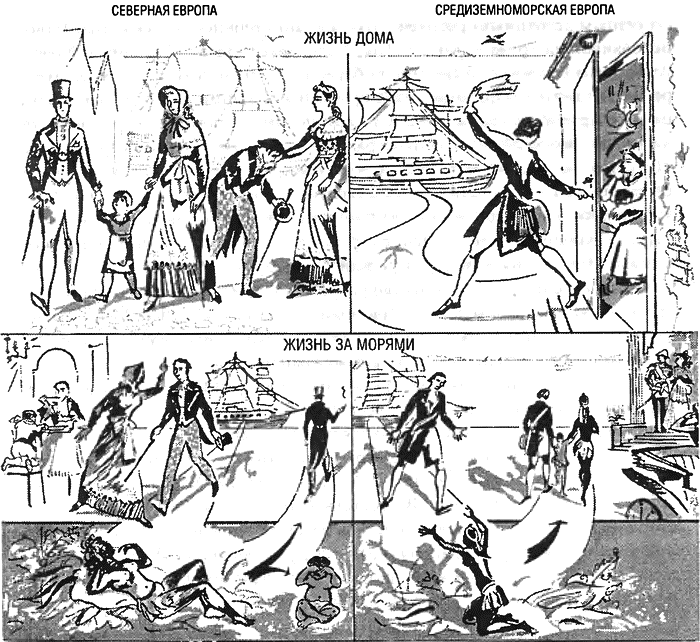 СЕВЕРНАЯ ЕВРОПА
СРЕДИЗЕМНОМОРСКАЯ ЕВРОПА
ЖИЗНЬ ДОМА
ЖИЗНЬ ЗА МОРЯМИ